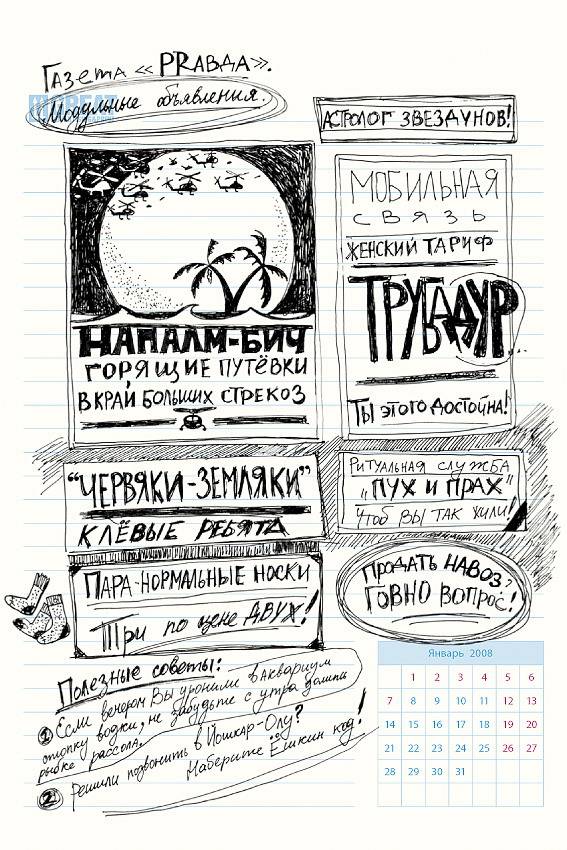 Газета «PRавда».
Модульные объявления.
АСТРОЛОГ ЗВЕЗДУНОВ!
НАПАЛМ-БИЧ
ГОРЯЩИЕ ПУТЁВКИ
В КРАЙ БОЛЬШИХ СТРЕКОЗ
МОБИЛЬНАЯ
СВЯЗЬ
ЖЕНСКИЙ ТАРИФ
ТРУБАДУР
ТЫ ЭТОГО ДОСТОЙНА!
"ЧЕРВЯКИ-ЗЕМЛЯКИ"
КЛЁВЫЕ РЕБЯТА
РИТУАЛЬНАЯ СЛУЖБА
„ПУХ И ПРАХ"
Чтоб вы так жили!
ПАРА-НОРМАЛЬНЫЕ НОСКИ
Три по цене ДВУХ!
ПРОДАТЬ НАВОЗ?
ГОВНО ВОПРОС!
Полезные советы:
1 Если вечером Вы уронили в аквариум
стопку водки, не забудьте с утра дать
рыбке рассола.
2 Решили позвонить в Йошкар-Олу?
Наберите Ёшкин код!
Январь 2008
1 2 3 4 5 6
7 8 9 10 11 12 13
14 15 16 17 18 19 20
21 22 23 24 25 26 27
28 29 30 31